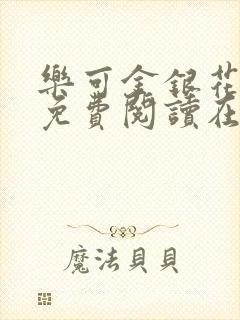 樂可金銀花
免費閱讀在
魔法貝貝